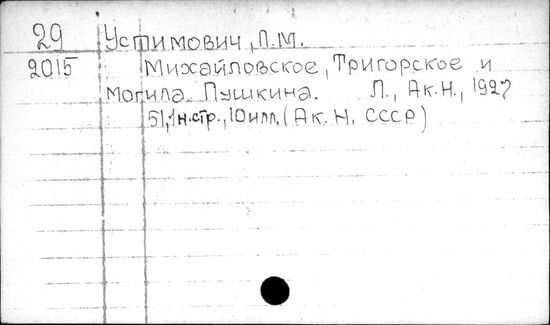 29 Устимович, П.М.
2015 Михайловское, Тригорское и
могила Пушкина. Л., Ак.Н., 1927
51,1н.стр., 10илл. (Ак. Н. СССР)